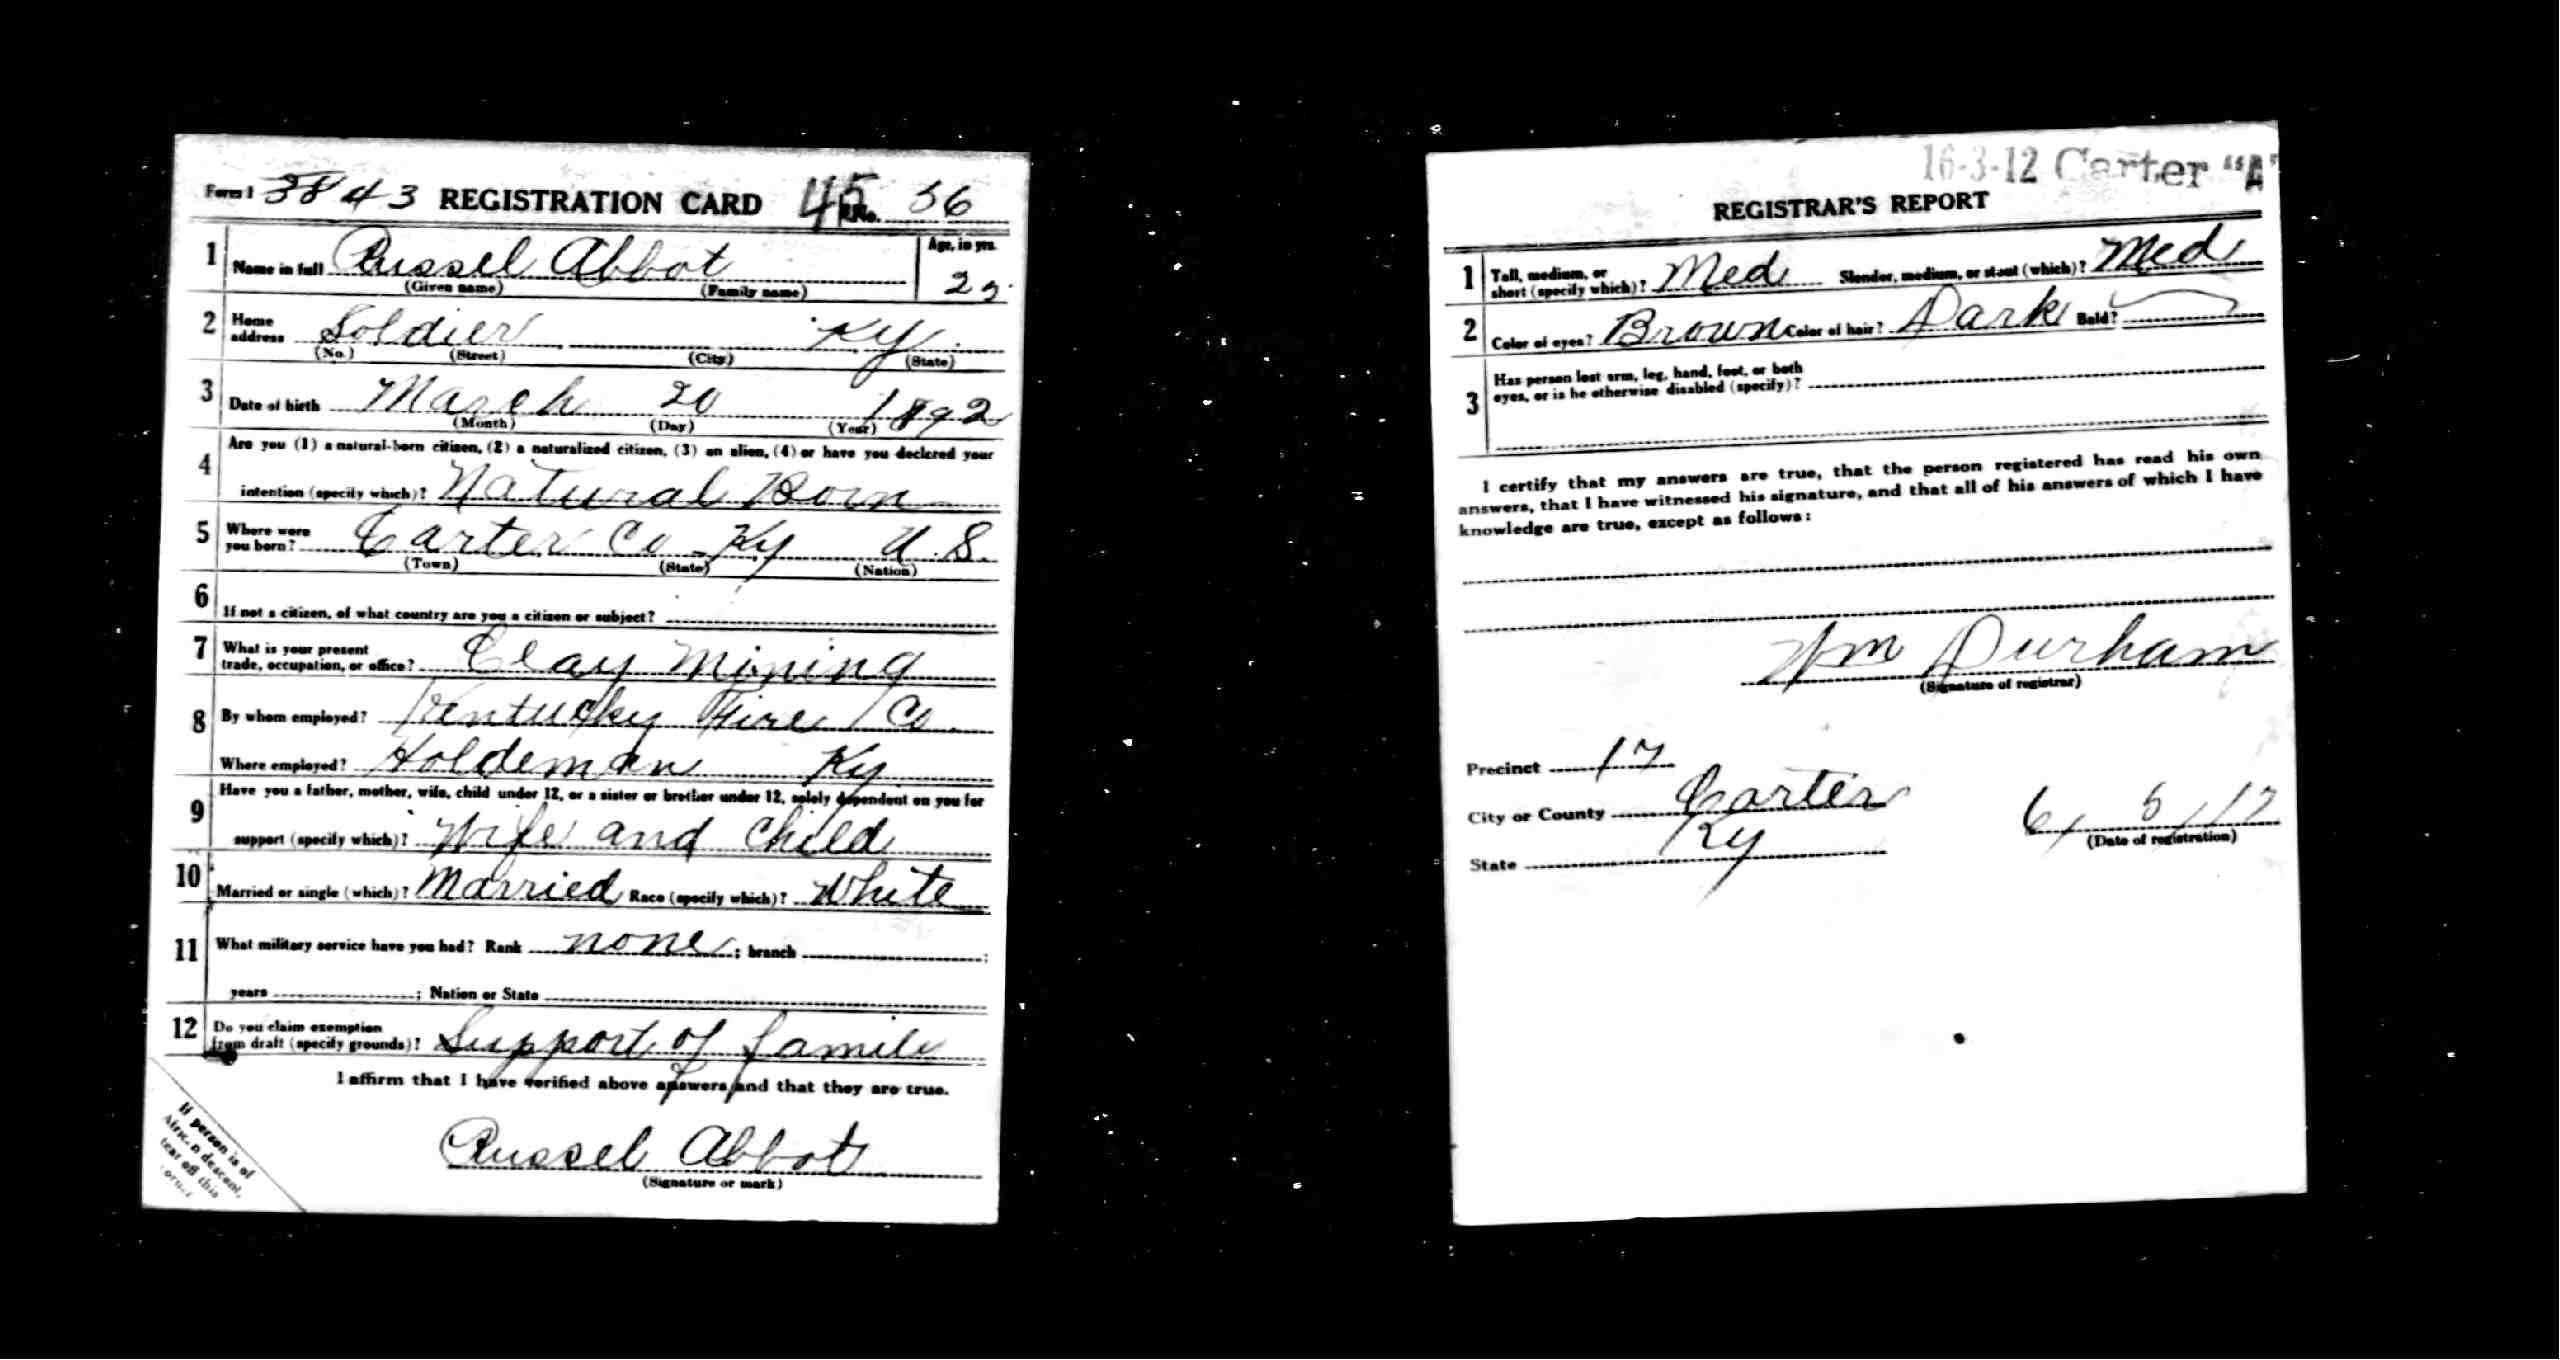 Form 1 3843 REGISTRATION CARD 45 No. 36
1 Name in full Russel Abbot Age, in yrs.
(Given name) (Family name)
2 Home address Soldier Ky.
(No.) (Street) (City) (State)
3 Date of birth March 20 1892
(Month) (Day) (Year)
4 Are you (1) a natural-born citizen, (2) a naturalized citizen, (3) an alien, (4) or have you declared your
intention (specify which)? Natural Born
5 Where were you born? Carter Co Ky U.S.
(Town) (State) (Nation)
6 If not a citizen, of what country are you a citizen or subject?
7 What is your present trade, occupation, or office? Clay Mining
8 By whom employed? Kentucky Fire Co.
Where employed? Holdeman Ky
9 Have you a father, mother, wife, child under 12, or a sister or brother under 12, solely dependent on you for
support (specify which)? Wife and Child
10 Married or single (which)? Married Race (specify which)? White
11 What military service have you had? Rank none; branch ;
years ; Nation or State
12 Do you claim exemption from draft (specify grounds)? Support of famili
I affirm that I have verified above answers and that they are true.
Russel Abbot
(Signature or mark)
If person is of
African descent,
tear off this
corner
16-3-12 Carter "A"
REGISTRAR'S REPORT
1 Tall, medium, or short (specify which)? Med Slender, medium, or stout (which)? Med
2 Color of eyes? Brown Color of hair? Dark Bald?
3 Has person lost arm, leg, hand, foot, or both
eyes, or is he otherwise disabled (specify)?
I certify that my answers are true, that the person registered has read his own
answers, that I have witnessed his signature, and that all of his answers of which I have
knowledge are true, except as follows:
Wm Durham
(Signature of registrar)
Precinct 17
City or County Carter
State Ky
6/5/17
(Date of registration)